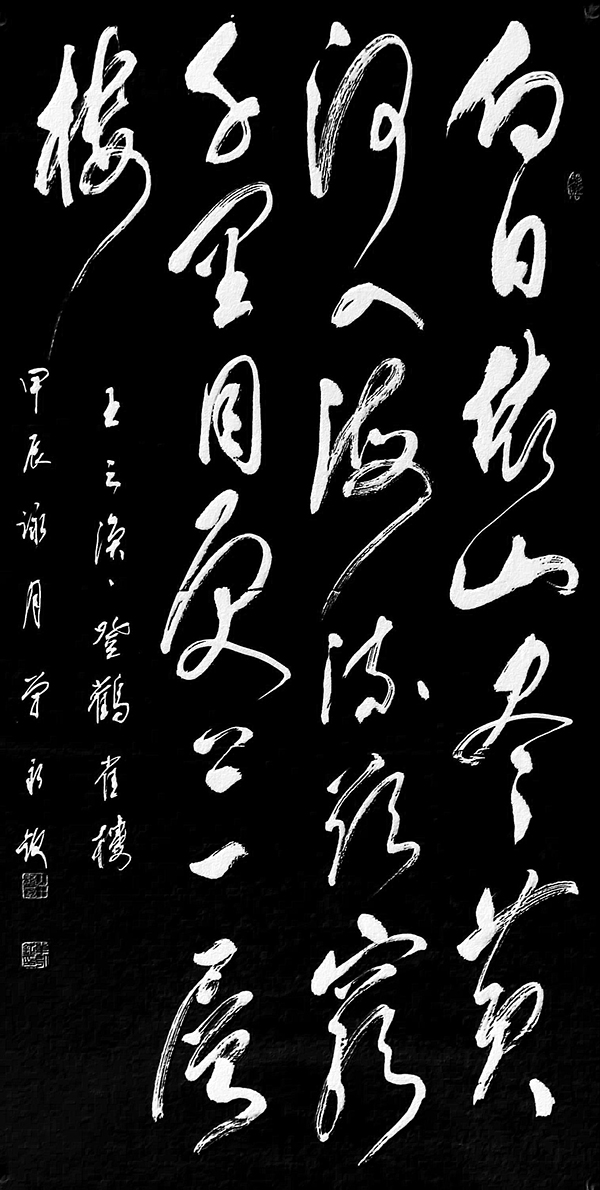 白日依山尽黄
河入海流欲穷
千里目更上一层
楼
王之涣、登鹳雀楼
甲辰咏月